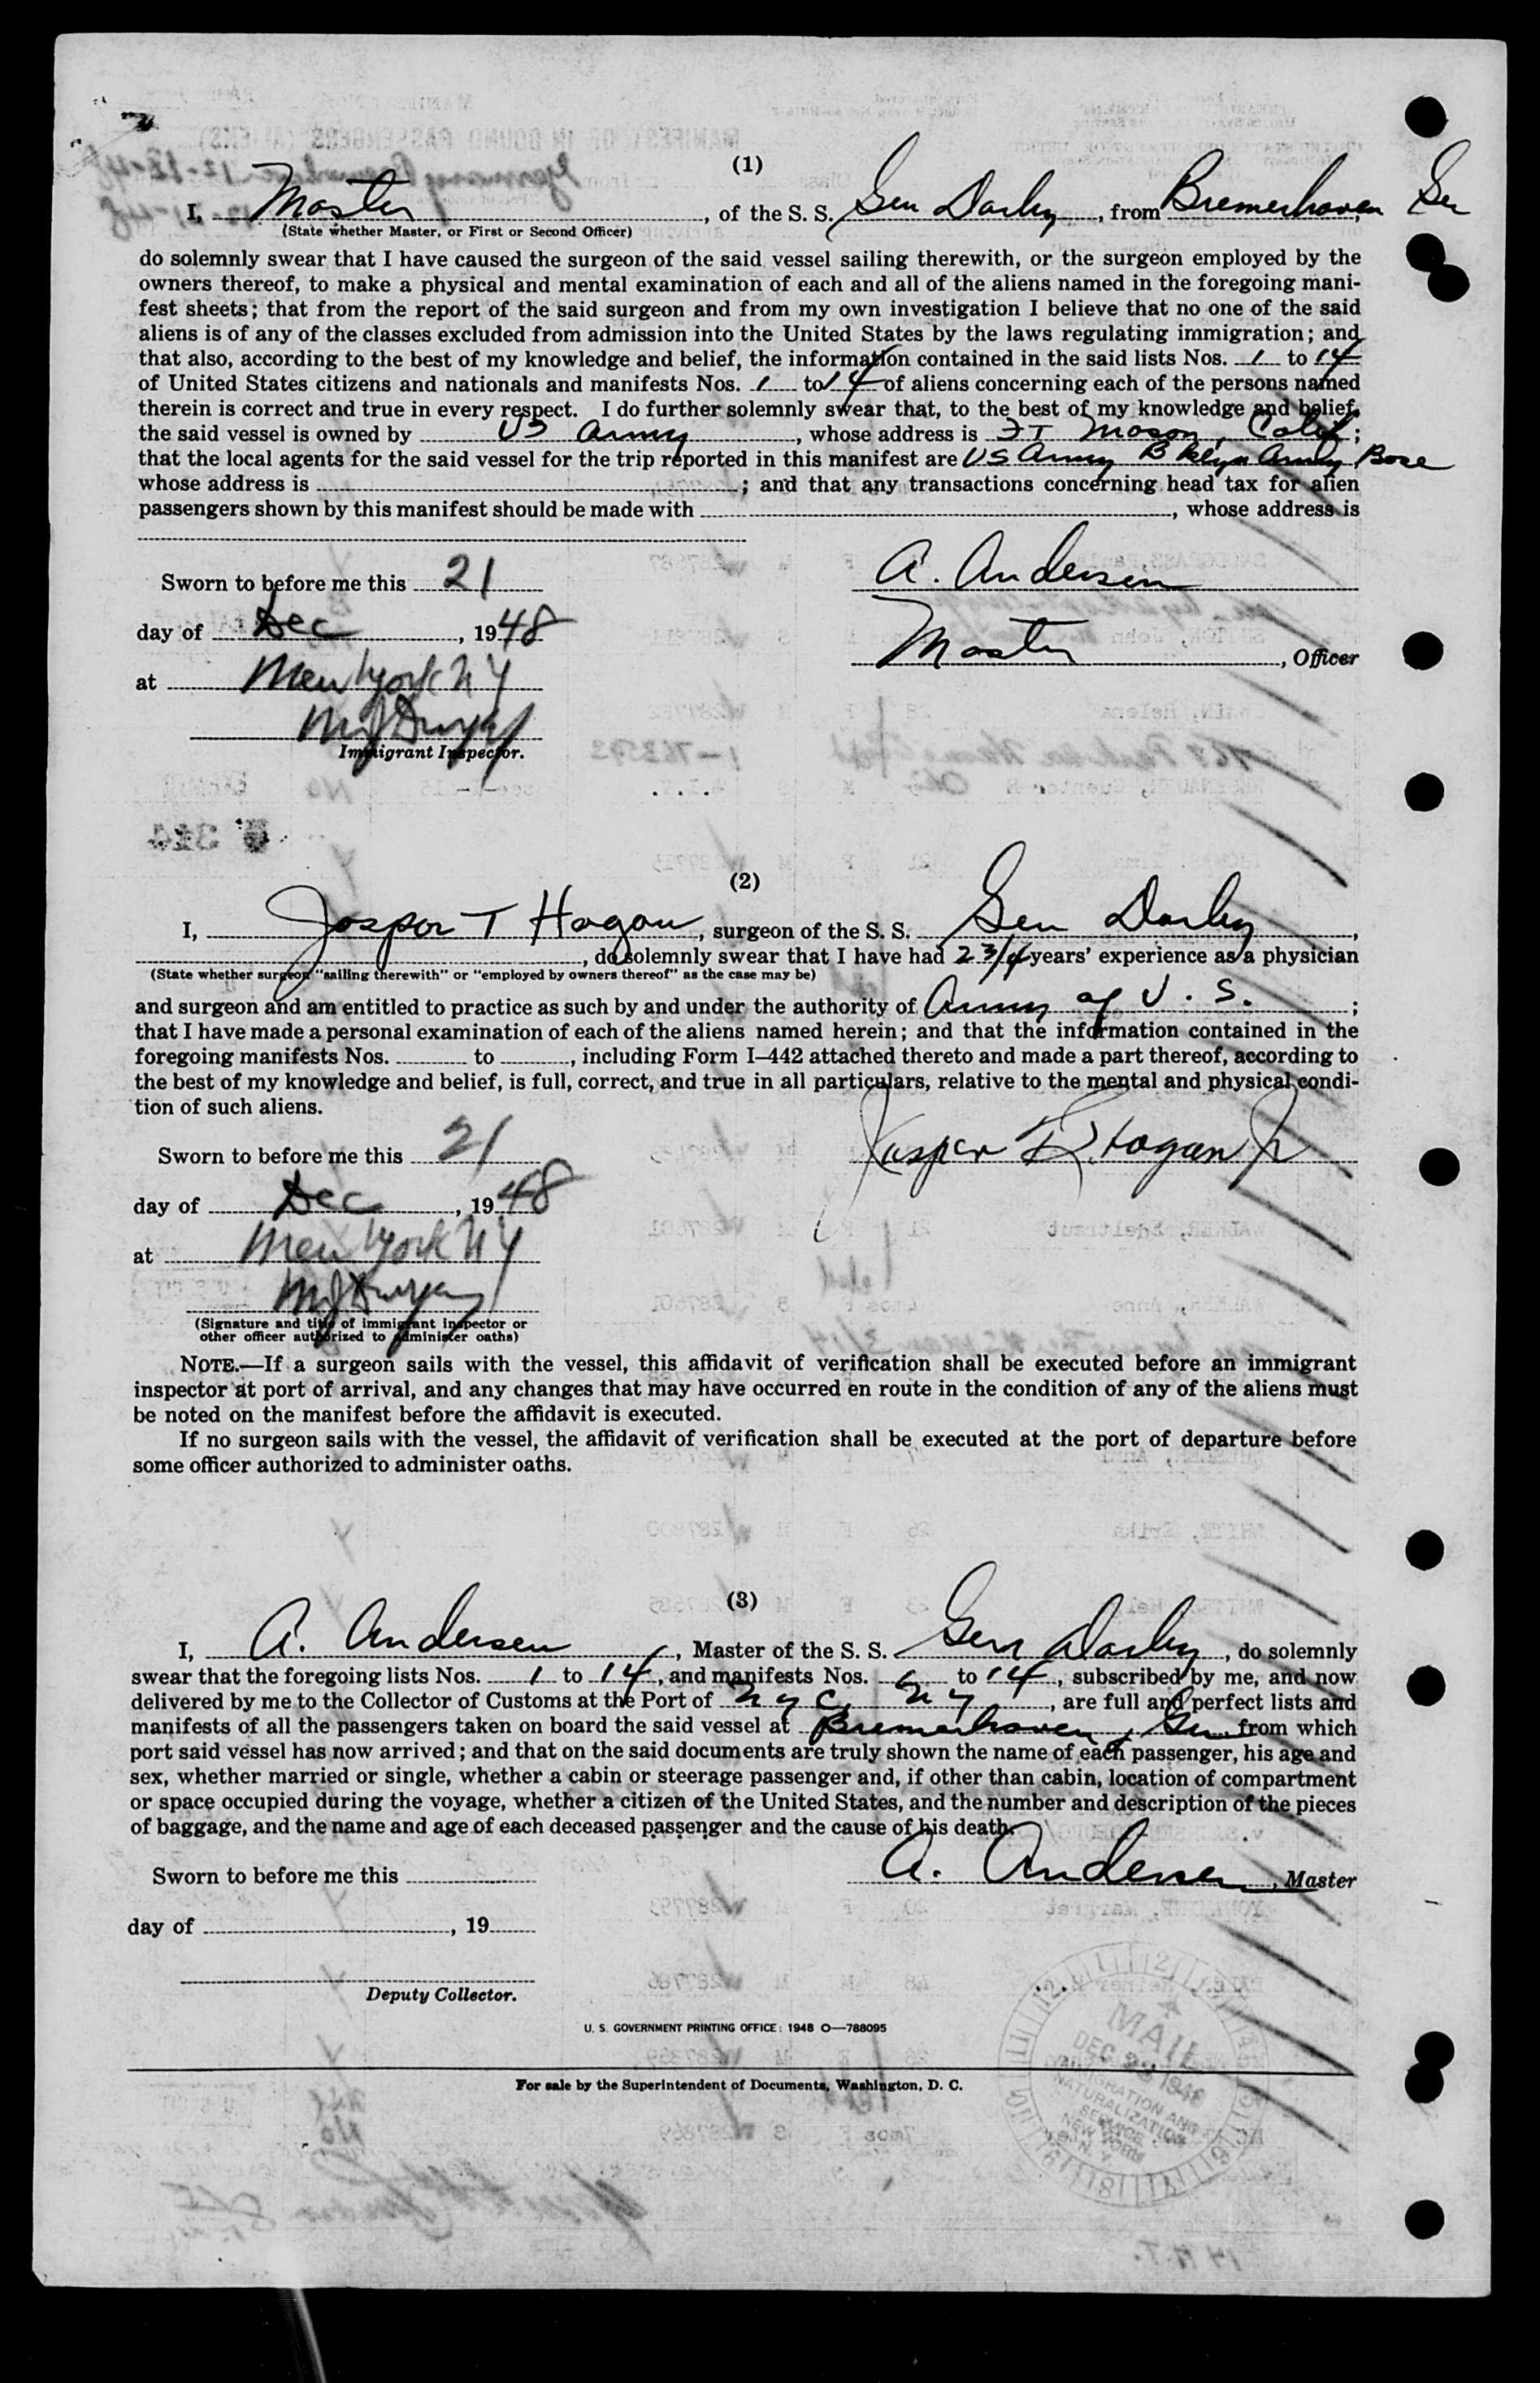 (1)
I, Master, of the S. S. Gen Darby, from Bremerhaven, Ger
(State whether Master, or First or Second Officer)
do solemnly swear that I have caused the surgeon of the said vessel sailing therewith, or the surgeon employed by the
owners thereof, to make a physical and mental examination of each and all of the aliens named in the foregoing mani-
fest sheets; that from the report of the said surgeon and from my own investigation I believe that no one of the said
aliens is of any of the classes excluded from admission into the United States by the laws regulating immigration; and
that also, according to the best of my knowledge and belief, the information contained in the said lists Nos. 1 to 14
of United States citizens and nationals and manifests Nos. 1 to 14 of aliens concerning each of the persons named
therein is correct and true in every respect. I do further solemnly swear that, to the best of my knowledge and belief,
the said vessel is owned by US Army, whose address is FT Mason, Calif;
that the local agents for the said vessel for the trip reported in this manifest are US Army Bklyn Army Base
whose address is ; and that any transactions concerning head tax for alien
passengers shown by this manifest should be made with , whose address is
Sworn to before me this 21
A. Andersen
day of Dec, 1948
Master, Officer
at New York NY
Immigrant Inspector.
(2)
I, Jasper T Hogan, surgeon of the S. S. Gen Darby,
, do solemnly swear that I have had 2 3/4 years' experience as a physician
(State whether surgeon "sailing therewith" or "employed by owners thereof" as the case may be)
and surgeon and am entitled to practice as such by and under the authority of Army of U. S. ;
that I have made a personal examination of each of the aliens named herein; and that the information contained in the
foregoing manifests Nos. to , including Form I-442 attached thereto and made a part thereof, according to
the best of my knowledge and belief, is full, correct, and true in all particulars, relative to the mental and physical condi-
tion of such aliens.
Sworn to before me this 21
Jasper T. Hogan Jr
day of Dec, 1948
at New York NY
(Signature and title of immigrant inspector or
other officer authorized to administer oaths)
NOTE.—If a surgeon sails with the vessel, this affidavit of verification shall be executed before an immigrant
inspector at port of arrival, and any changes that may have occurred en route in the condition of any of the aliens must
be noted on the manifest before the affidavit is executed.
If no surgeon sails with the vessel, the affidavit of verification shall be executed at the port of departure before
some officer authorized to administer oaths.
(3)
I, A. Andersen, Master of the S. S. Gen Darby, do solemnly
swear that the foregoing lists Nos. 1 to 14, and manifests Nos. to 14, subscribed by me, and now
delivered by me to the Collector of Customs at the Port of NYC, NY, are full and perfect lists and
manifests of all the passengers taken on board the said vessel at Bremerhaven, Ger from which
port said vessel has now arrived; and that on the said documents are truly shown the name of each passenger, his age and
sex, whether married or single, whether a cabin or steerage passenger and, if other than cabin, location of compartment
or space occupied during the voyage, whether a citizen of the United States, and the number and description of the pieces
of baggage, and the name and age of each deceased passenger and the cause of his death.
Sworn to before me this
A. Andersen, Master
day of , 19
Deputy Collector.
U. S. GOVERNMENT PRINTING OFFICE: 1948 O—788095
For sale by the Superintendent of Documents, Washington, D. C.
MAIL
DEC 1948
IMMIGRATION AND
NATURALIZATION
SERVICE
NEW YORK
N. Y.